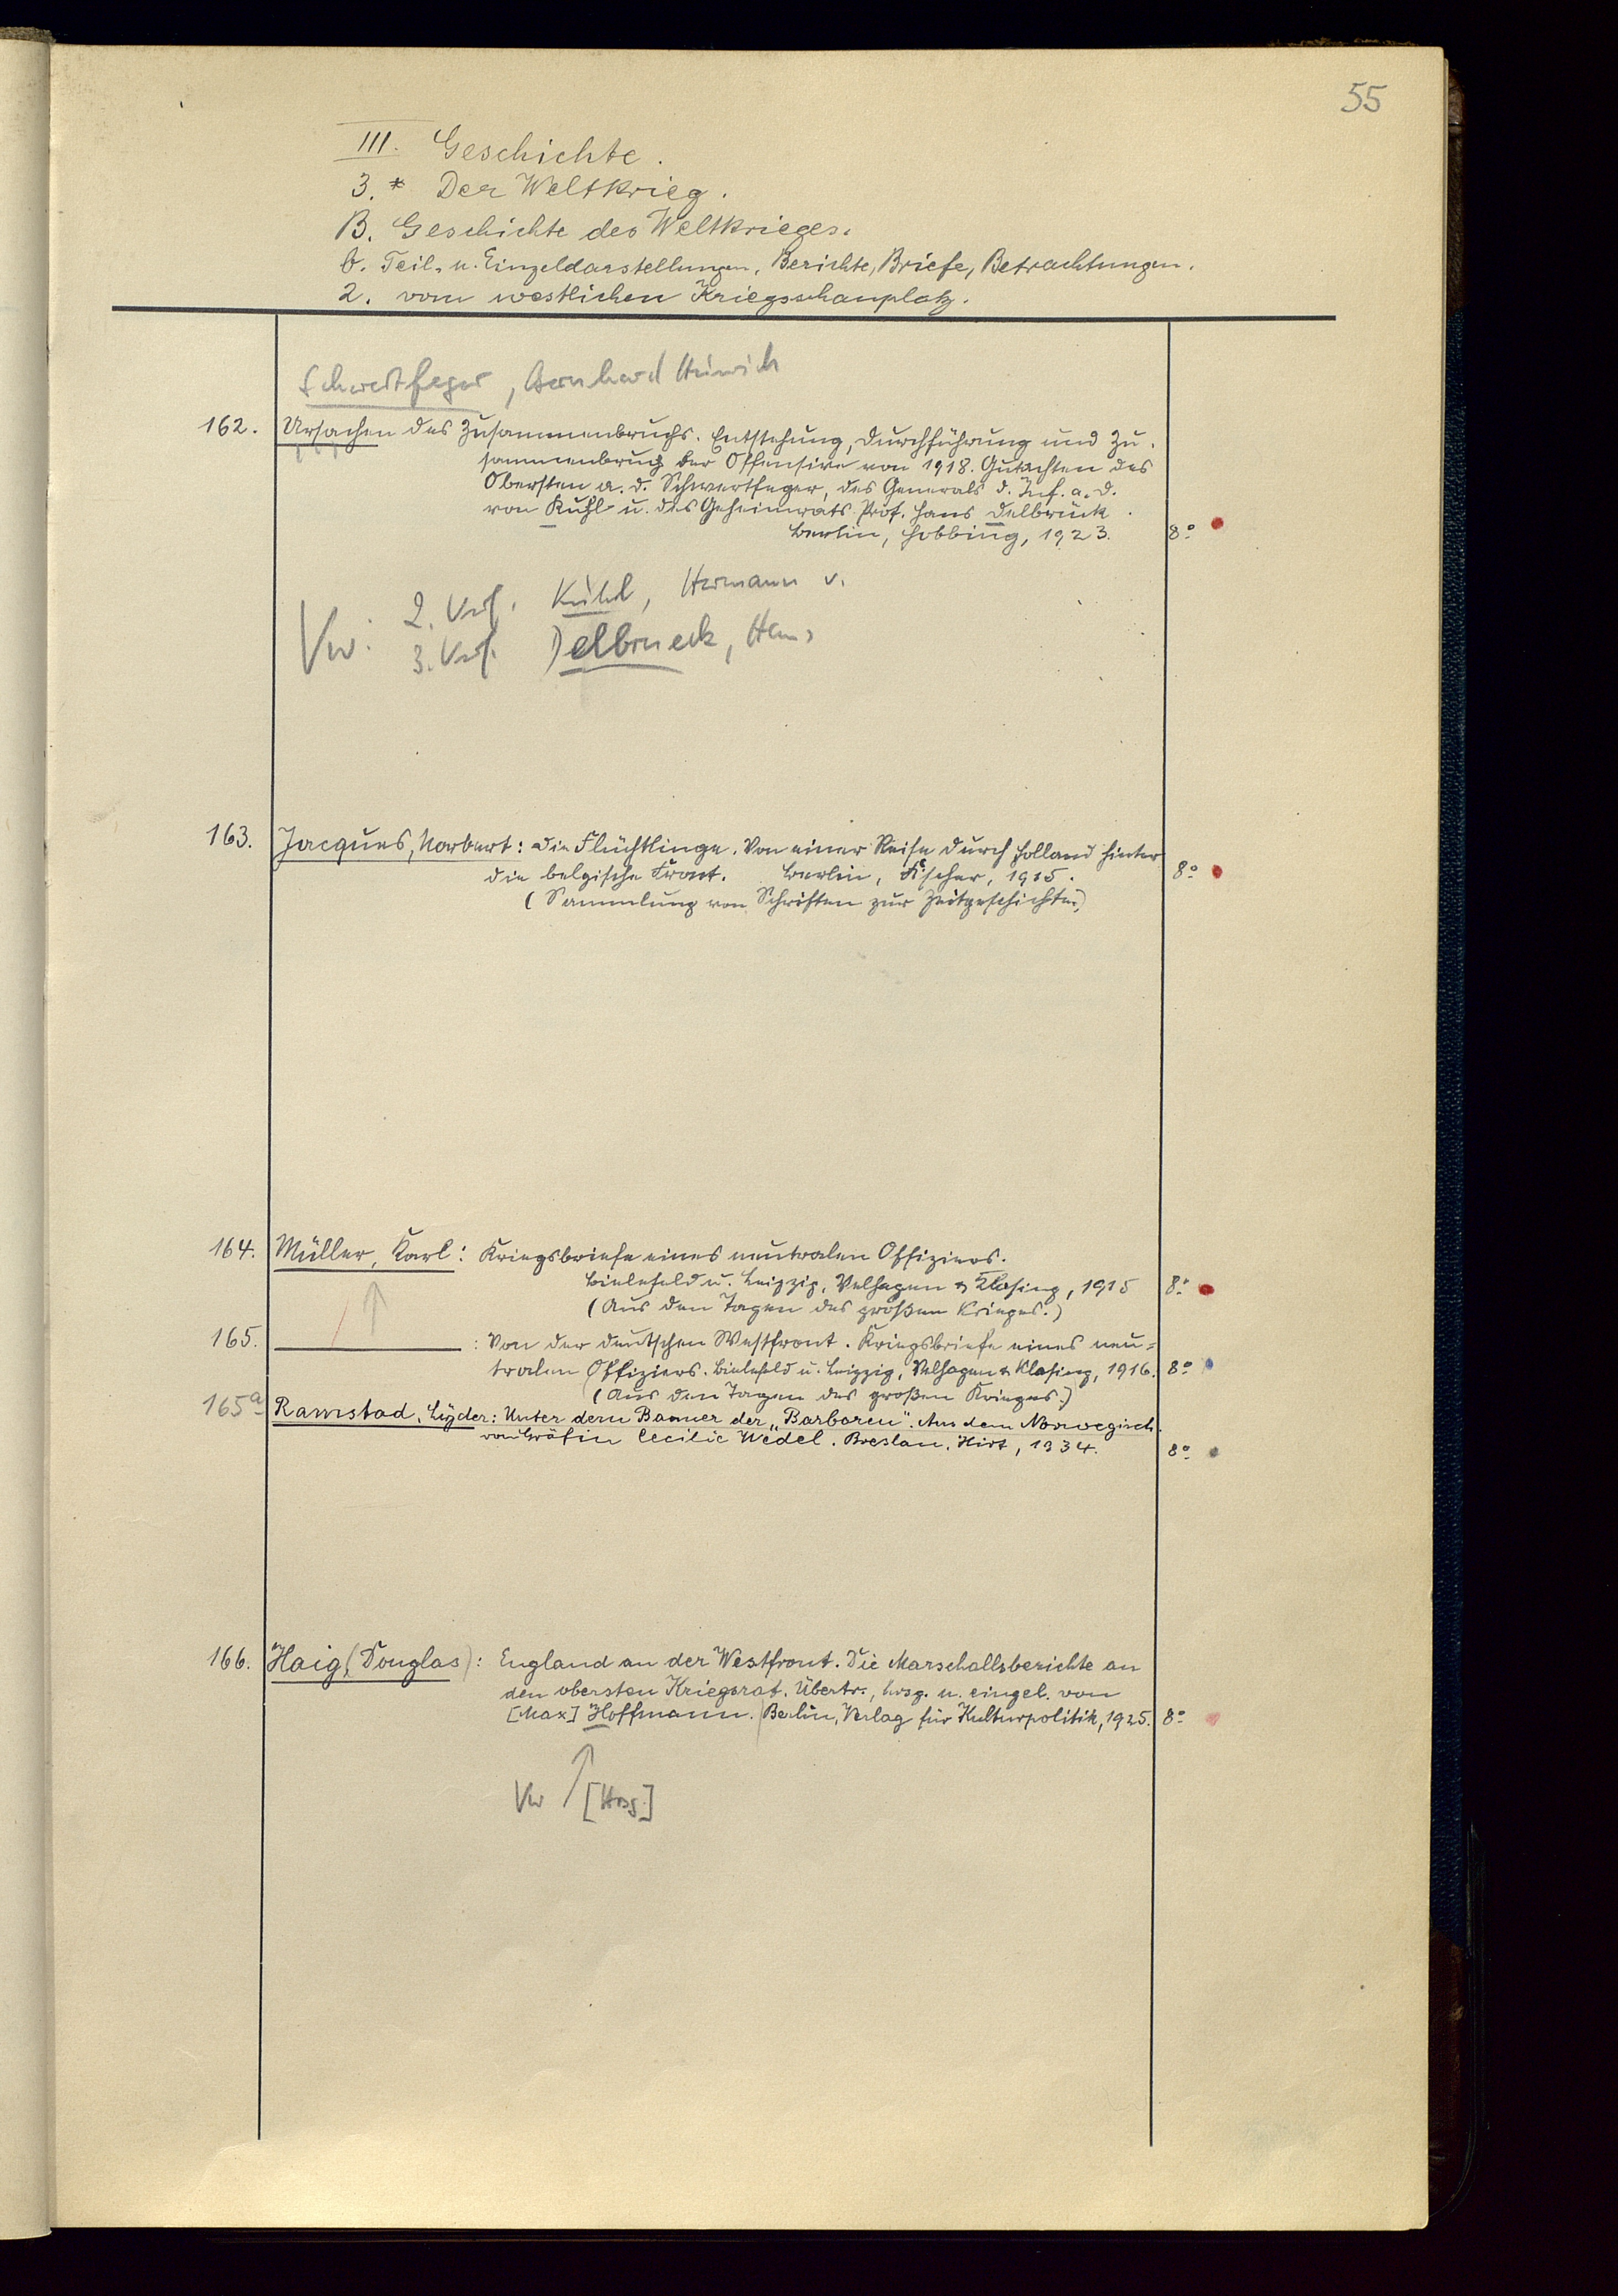 55
III. Geschichte.
3.* Der Weltkrieg.
B. Geschichte des Weltkrieges.
b. Teil- u. Einzeldarstellungen, Berichte, Briefe, Betrachtungen.
2. vom westlichen Kriegsschauplatz.
Schwertfeger, Bernhard Heinrich
162. Ursachen des Zusammenbruchs. Entstehung, Durchführung und Zu-
sammenbruch der Offensive von 1918. Gutachten des
Obersten a. D. Schwertfeger, des Generals d. Inf. a. D.
von Kuhl u. des Geheimrats Prof. Hans Delbrück.
Berlin, Hobbing, 1923. 8°
Vw: 2. Verf. Kuhl, Hermann v.
3. Verf. Delbrueck, Hans
163. Jacques, Norbert: Die Flüchtlinge. Von einer Reise durch Holland hinter
die belgische Front. Berlin, Fischer, 1915. 8°
(Sammlung von Schriften zur Zeitgeschichte.)
164. Müller, Karl: Kriegsbriefe eines neutralen Offiziers.
Bielefeld u. Leipzig, Velhagen & Klasing, 1915 8°
(Aus den Tagen des großen Krieges.)
165. : Von der deutschen Westfront. Kriegsbriefe eines neu=
tralen Offiziers. Bielefeld u. Leipzig, Velhagen & Klasing, 1916. 8°
(Aus den Tagen des großen Krieges.)
165a Ramstad, Lyder: Unter dem Banner der „Barbaren". Aus dem Norwegisch.
von Gräfin Cecilie Wedel. Breslau, Hirt, 1934. 8°
166. Haig, (Douglas): England an der Westfront. Die Marschallsberichte an
den obersten Kriegsrat. Übertr., hrsg. u. eingel. von
[Max] Hoffmann. Berlin, Verlag für Kulturpolitik, 1925. 8°
Vw [Hrsg.]